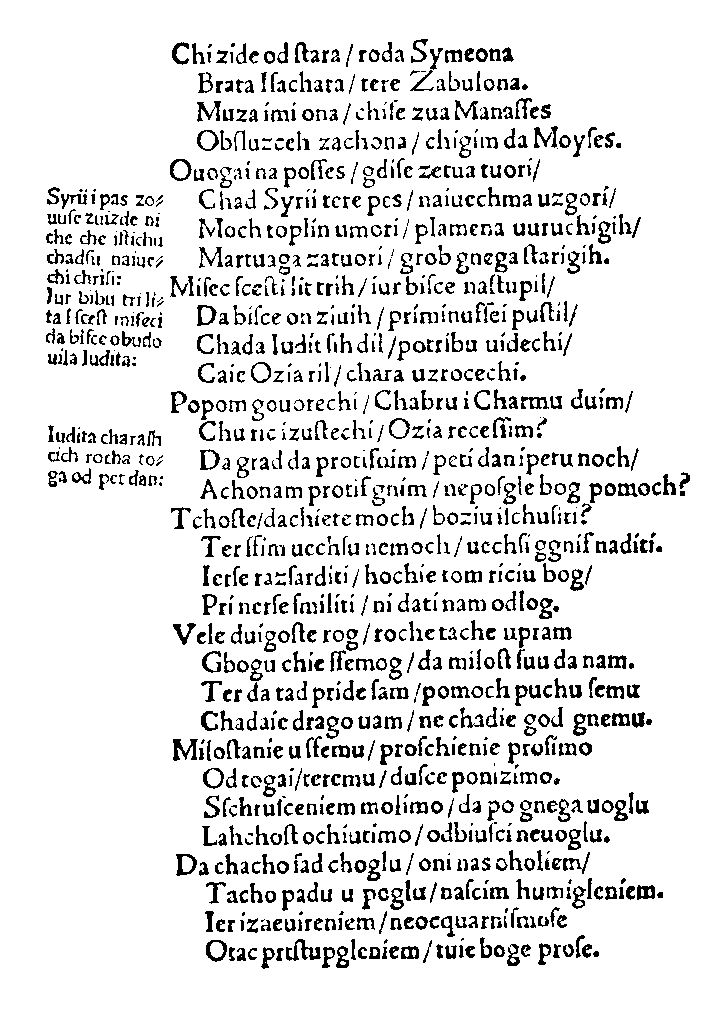 Chi zide od ſtara / roda Symeona
Brata Iſachara / tere Zabulona.
Muza imi ona / chiſe zua Manaſſes
Obſluzceh zachona / chigim da Moyſes.
Ouogai na poſſes / gdiſe zetua tuori/
Chad Syrii tere pes / naiuechma uzgori/
Moch toplin umori / plamena uuruchigih/
Martuaga zatuori / grob gnega ſtarigih.
Syrii i pas zo⸗
uuſe zuizde ni
che che iſtichu
chadſu naiue⸗
chi chriſi:
Miſec ſceſti lit trih / iur biſce naſtupil/
Da biſce on ziuih / priminuſſei puſtil/
Chada Iudit ſih dil /potribu uidechi/
Gaie Ozia ril / chara uzrocechi.
Iur bibu tri li⸗
ta i ſceſt miſeci
da biſce obudo
uila Iudita:
Popom gouorechi / Chabru i Charmu duim/
Chu ric izuſtechi / Ozia receſſim?
Da grad da protiſuim / peti dan ipetu noch/
Achonam protiſ gnim / nepoſgle bog pomoch?
Iudita charaſh
cich rotha to⸗
ga od pet dan:
Tchoſte/dachiete moch / boziu iſchuſiti?
Ter ſſim uechſu nemoch / uechſi ggniſ naditi.
Ierſe razſarditi / hochie tom riciu bog/
Pri nerſe ſmiliti / ni dati nam odlog.
Vele duigoſte rog / roche tache upram
Gbogu chie ſſemog / da miloſt ſuu da nam.
Ter da tad pride ſam /pomoch puchu ſemu
Chadaie drago uam / ne chadie god gnemu.
Miloſtanie u ſſemu / proſchienie proſimo
Od togai/teremu / duſce ponizimo.
Sſchruſceniem molimo / da po gnega uoglu
Lahchoſt ochiutimo / odbiuſci neuoglu.
Da chacho ſad choglu / oni nas oholiem/
Tacho padu u poglu / naſcim humigleniem.
Ier izaeuireniem / neocquarniſmoſe
Otac priſtupgleniem / tuie boge proſe.